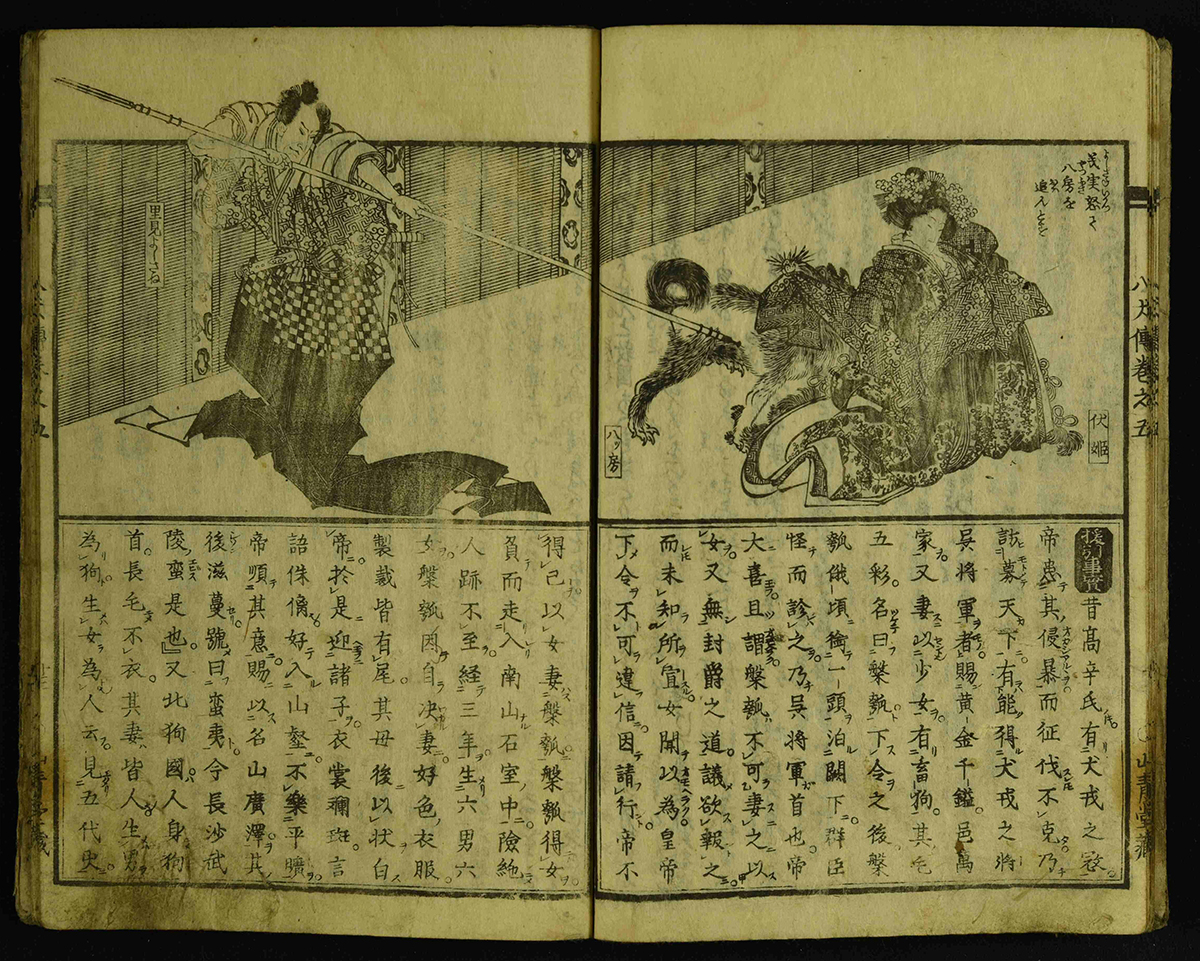 義実怒て
八房を
追んとす
伏姫
八ツ房
里見よしさね
八犬傳巻之五
山青堂藏
援引事實 昔髙辛氏有犬戎之寇
帝患其侵暴而征伐不克乃
訪募天下有能得犬戎之將
呉將軍者賜黄金千鎰邑萬
家又妻以少女有畜狗其毛
五彩名曰槃瓠下令之後槃
瓠俄頃銜一頭泊闕下群臣
怪而診之乃呉將軍首也帝
大喜且謂槃瓠不可妻之以
女又無封爵之道議欲報之
而未知所宜女聞以為皇帝
下令不可違信因請行帝不
得已以女妻槃瓠槃瓠得女
負而走入南山石室中險絶
人跡不至経三年生六男六
女槃瓠因自决妻好色衣服
製裁皆有尾其母後以状白
帝於是迎諸子衣裳襴斑言
語侏㒧好入山壑不樂平曠
帝順其意賜以名山廣澤其
後滋蔓號曰蛮夷今長沙武
陵蛮是也又北狗國人身狗
首長毛不衣其妻皆人生男
為狗生女為人云見五代史